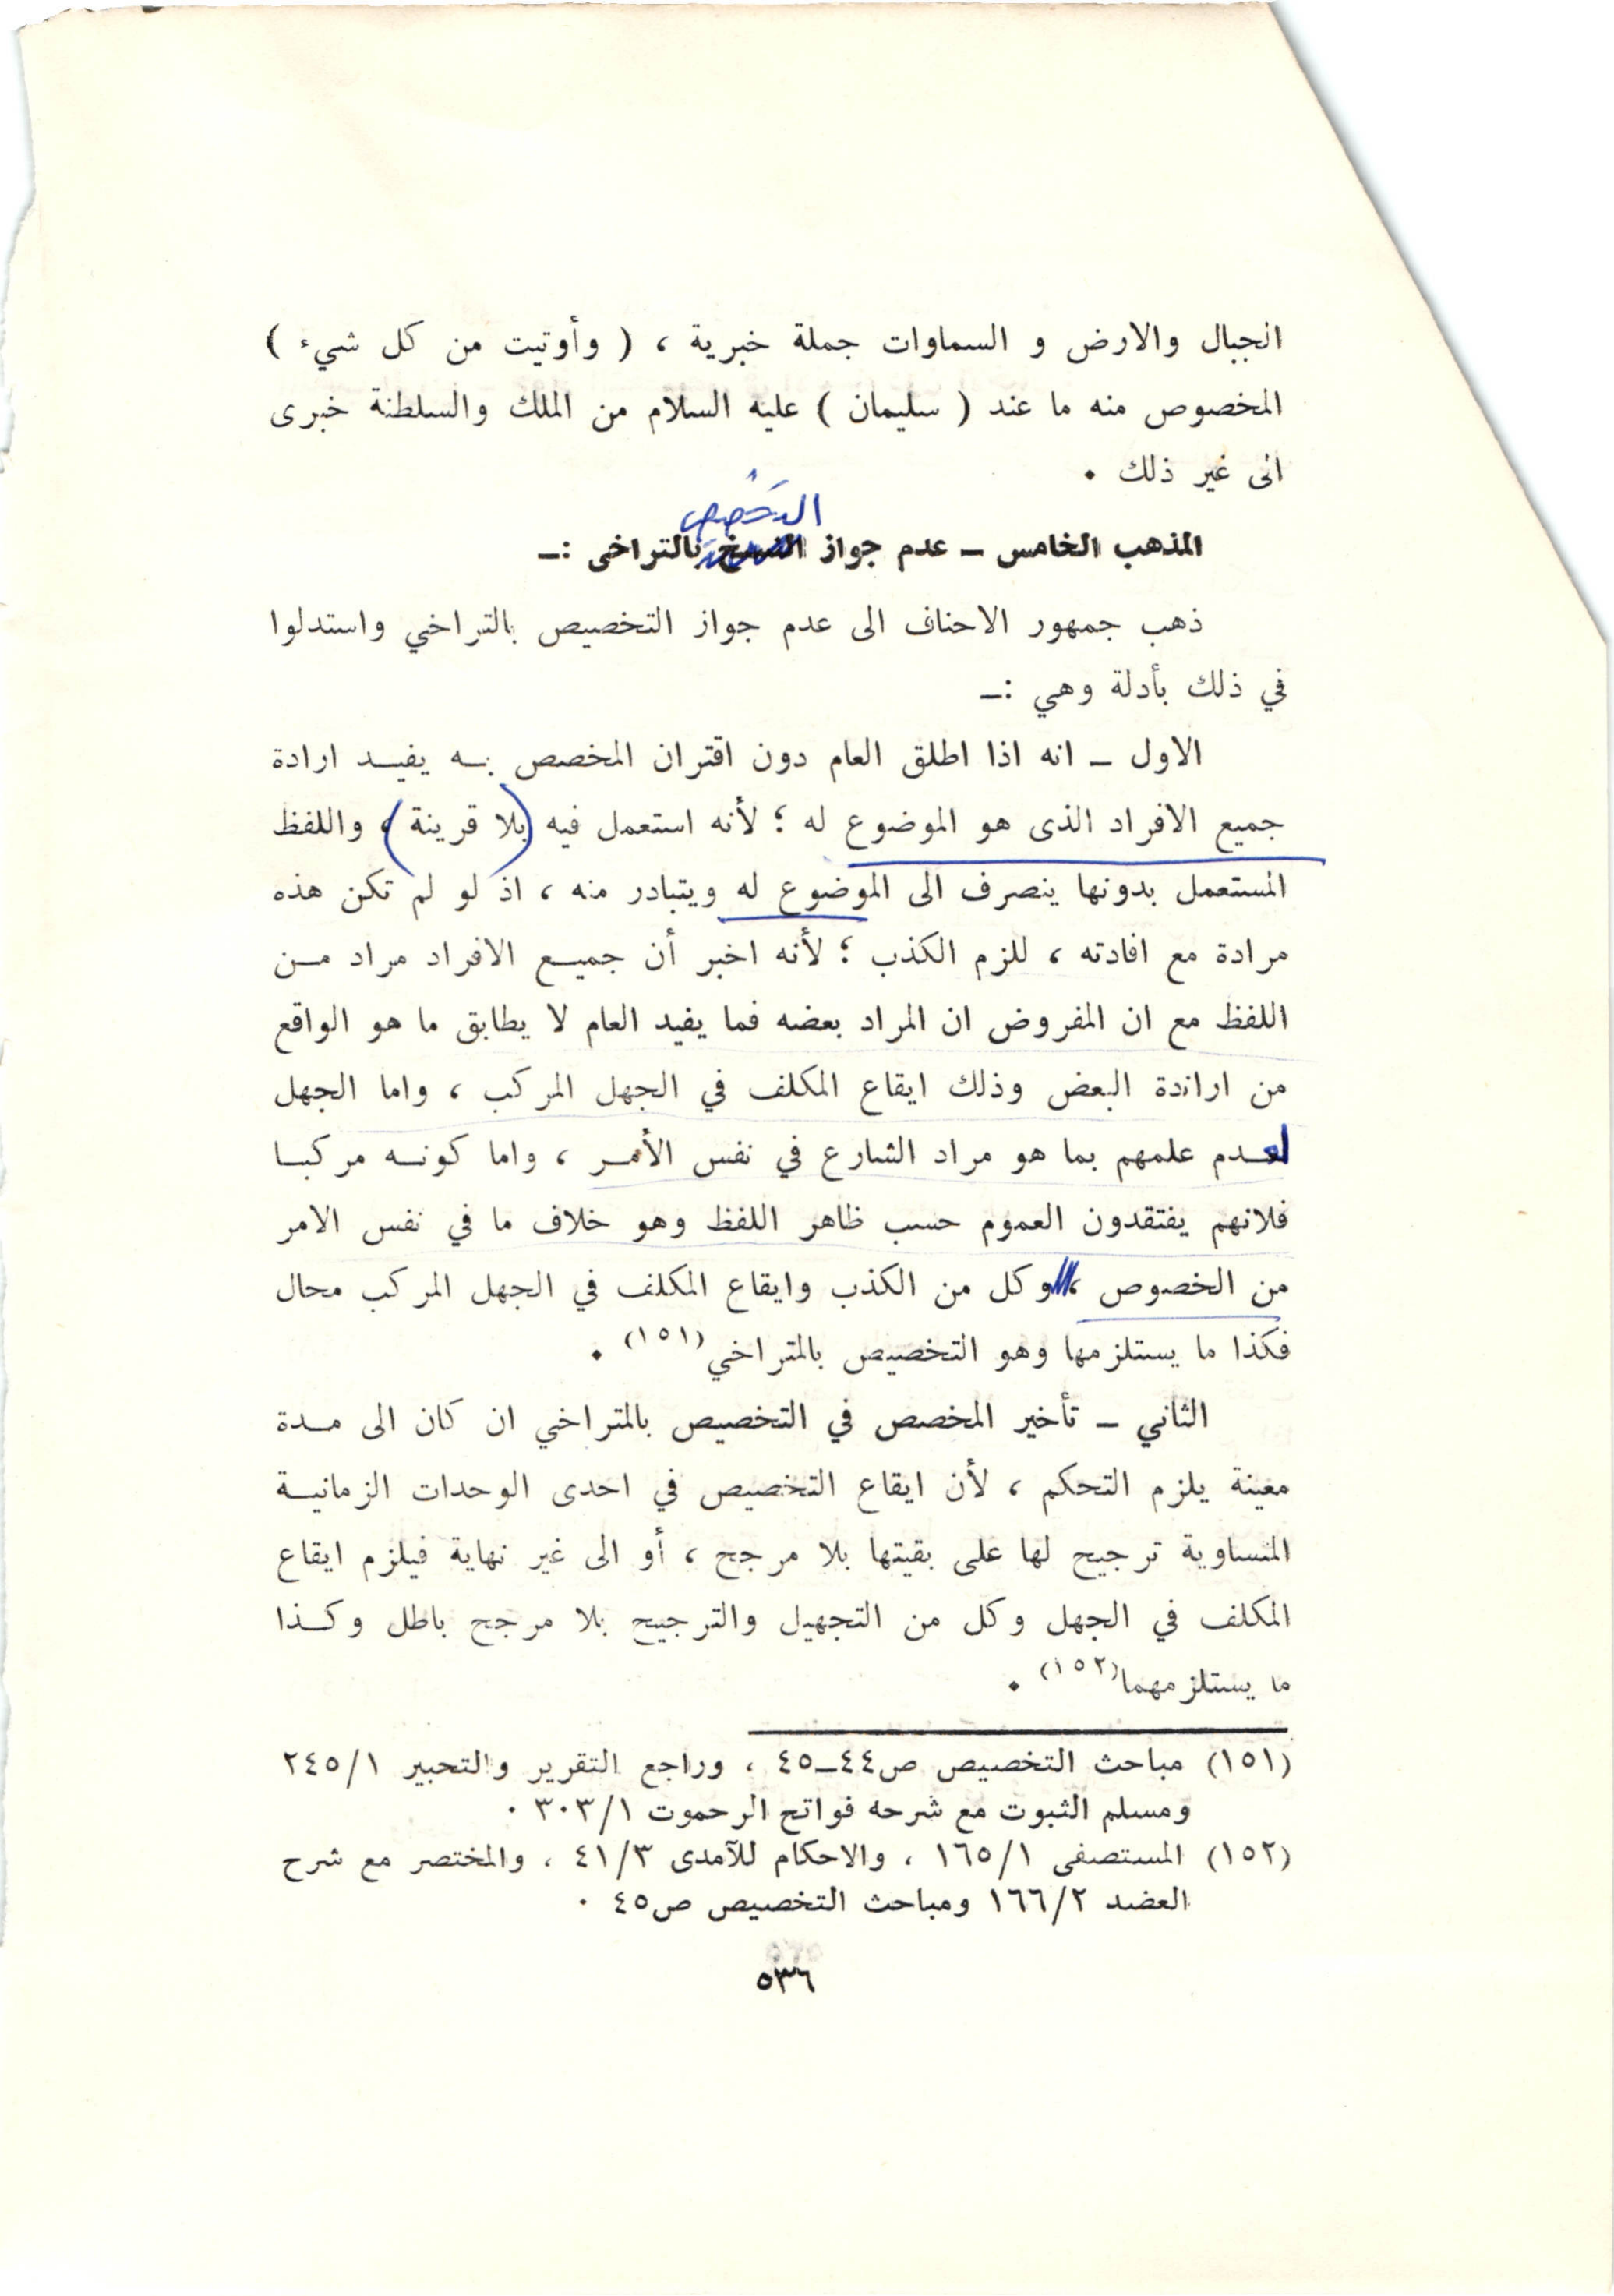 الجبال والارض و السماوات جملة خبرية ، ( وأوتيت من كل شيء )
المخصوص منه ما عند ( سليمان ) عليه السلام من الملك والسلطنة خبرى
الى غير ذلك .
التخصيص
المذهب الخامس ــ عدم جواز النسخ بالتراخى :ــ
ذهب جمهور الاحناف الى عدم جواز التخصيص بالتراخي واستدلوا
في ذلك بأدلة وهي :ــ
الاول ــ انه اذا اطلق العام دون اقتران المخصص بـه يفيـد ارادة
جميع الافراد الذى هو الموضوع له ؛ لأنه استعمل فيه (بلا قرينة) ، واللفظ
المستعمل بدونها ينصرف الى الموضوع له ويتبادر منه ، اذ لو لم تكن هذه
مرادة مع افادته ، للزم الكذب ؛ لأنه اخبر أن جميـع الافراد مراد مـن
اللفظ مع ان المفروض ان المراد بعضه فما يفيد العام لا يطابق ما هو الواقع
من اراندة البعض وذلك ايقاع المكلف في الجهل المركب ، واما الجهل
لعـدم علمهم بما هو مراد الشارع في نفس الأمـر ، واما كونـه مركبـا
فلانهم يفتقدون العموم حسب ظاهر اللفظ وهو خلاف ما في نفس الامر
من الخصوص ، وكل من الكذب وايقاع المكلف في الجهل المركب محال
فكذا ما يستلزمها وهو التخصيص بالمتراخي (١٥١) .
الثاني ــ تأخير المخصص في التخصيص بالمتراخي ان كان الى مـدة
معينة يلزم التحكم ، لأن ايقاع التخصيص في احدى الوحدات الزمانيـة
المتساوية ترجيح لها على بقيتها بلا مرجح ، أو الى غير نهاية فيلزم ايقاع
المكلف في الجهل وكل من التجهيل والترجيح بلا مرجح باطل وكـذا
ما يستلزمهما (١٥٢) .
(١٥١) مباحث التخصيص ص٤٤ــ٤٥ ، وراجع التقرير والتحبير ٢٤٥/١
ومسلم الثبوت مع شرحه فواتح الرحموت ٣٠٣/١ .
(١٥٢) المستصفى ١٦٥/١ ، والاحكام للآمدى ٤١/٣ ، والمختصر مع شرح
العضد ١٦٦/٢ ومباحث التخصيص ص٤٥ .
٥٣٦